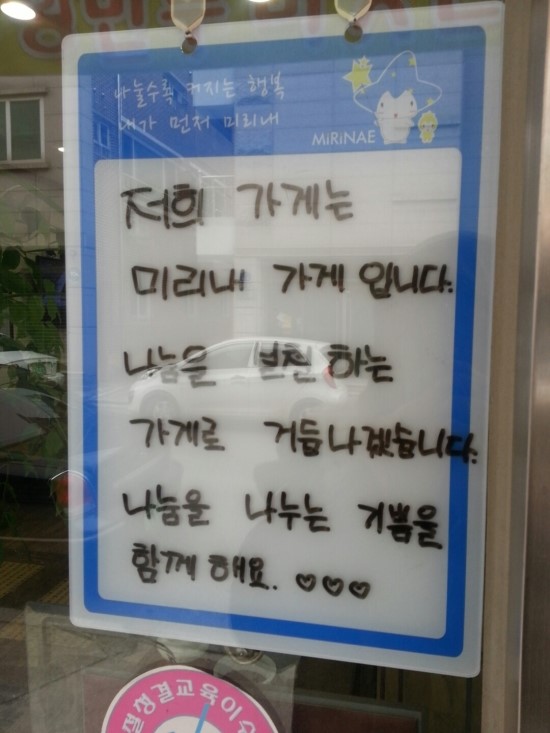 나눌수록 커지는 행복
내가 먼저 미리내
MiRiNAE
저희 가게는
미리내 가게 입니다.
나눔을 실천 하는
가게로 거듭나겠습니다.
나눔을 나누는 기쁨을
함께 해요. ♡♡♡
청결교육이수